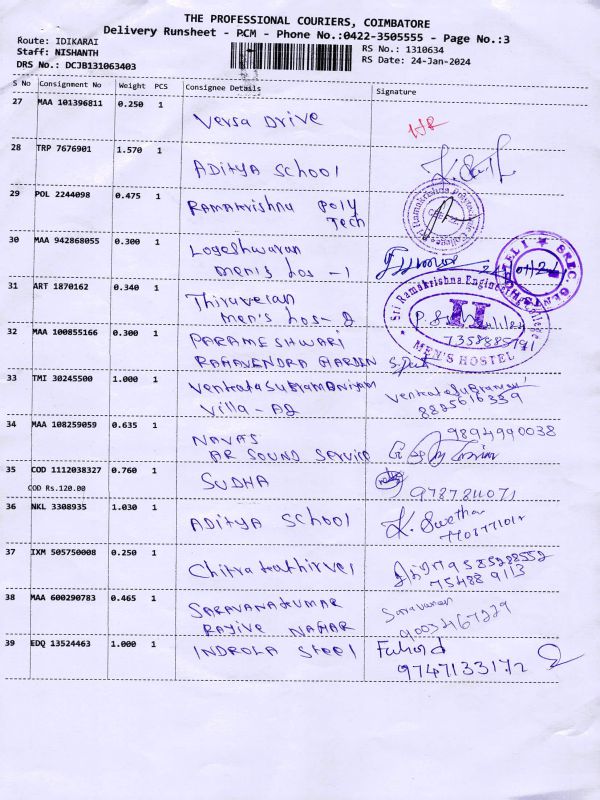 THE PROFESSIONAL COURIERS, COIMBATORE
Delivery Runsheet - PCM - Phone No.:0422-3505555 - Page No.:3
Route: IDIKARAI
RS No.: 1310634
Staff: NISHANTH
RS Date: 24-Jan-2024
DRS No.: DCJB131063403
S No Consignment No Weight PCS Consignee Details Signature
27 MAA 101396811 0.250 1 Versa Drive
28 TRP 7676901 1.570 1 ADitya School
29 POL 2244098 0.475 1 Ramakrishna Poly
Tech
30 MAA 942868055 0.300 1 Logeshwaran
men's hos - 1
31 ART 1870162 0.340 1 Thiruvelan
men's hos - 2
Sri Ramakrishna Engineering College
II
MEN'S HOSTEL
7358885791
32 MAA 100855166 0.300 1 PARAMESHWARI
RAGAVENDRA GARDEN
33 TMI 30245500 1.000 1 VenkataSubramaniyam
Villa - A2
8825616359
34 MAA 108259059 0.635 1 NAVAS
AR SOUND Service
9894990038
35 COD 1112038327 0.760 1 SUDHA
COD Rs.120.00
9787811071
36 NKL 3308935 1.030 1 ADitya School K. Swetha
37 IXM 505750008 0.250 1 Chitrakathirvel
9585288552
75488 9113
38 MAA 600290783 0.465 1 SARAVANAKUMAR Saravanan
RAJIVE NAGAR
9003467229
39 EDQ 13524463 1.000 1 INDROLA Steel
9747133172